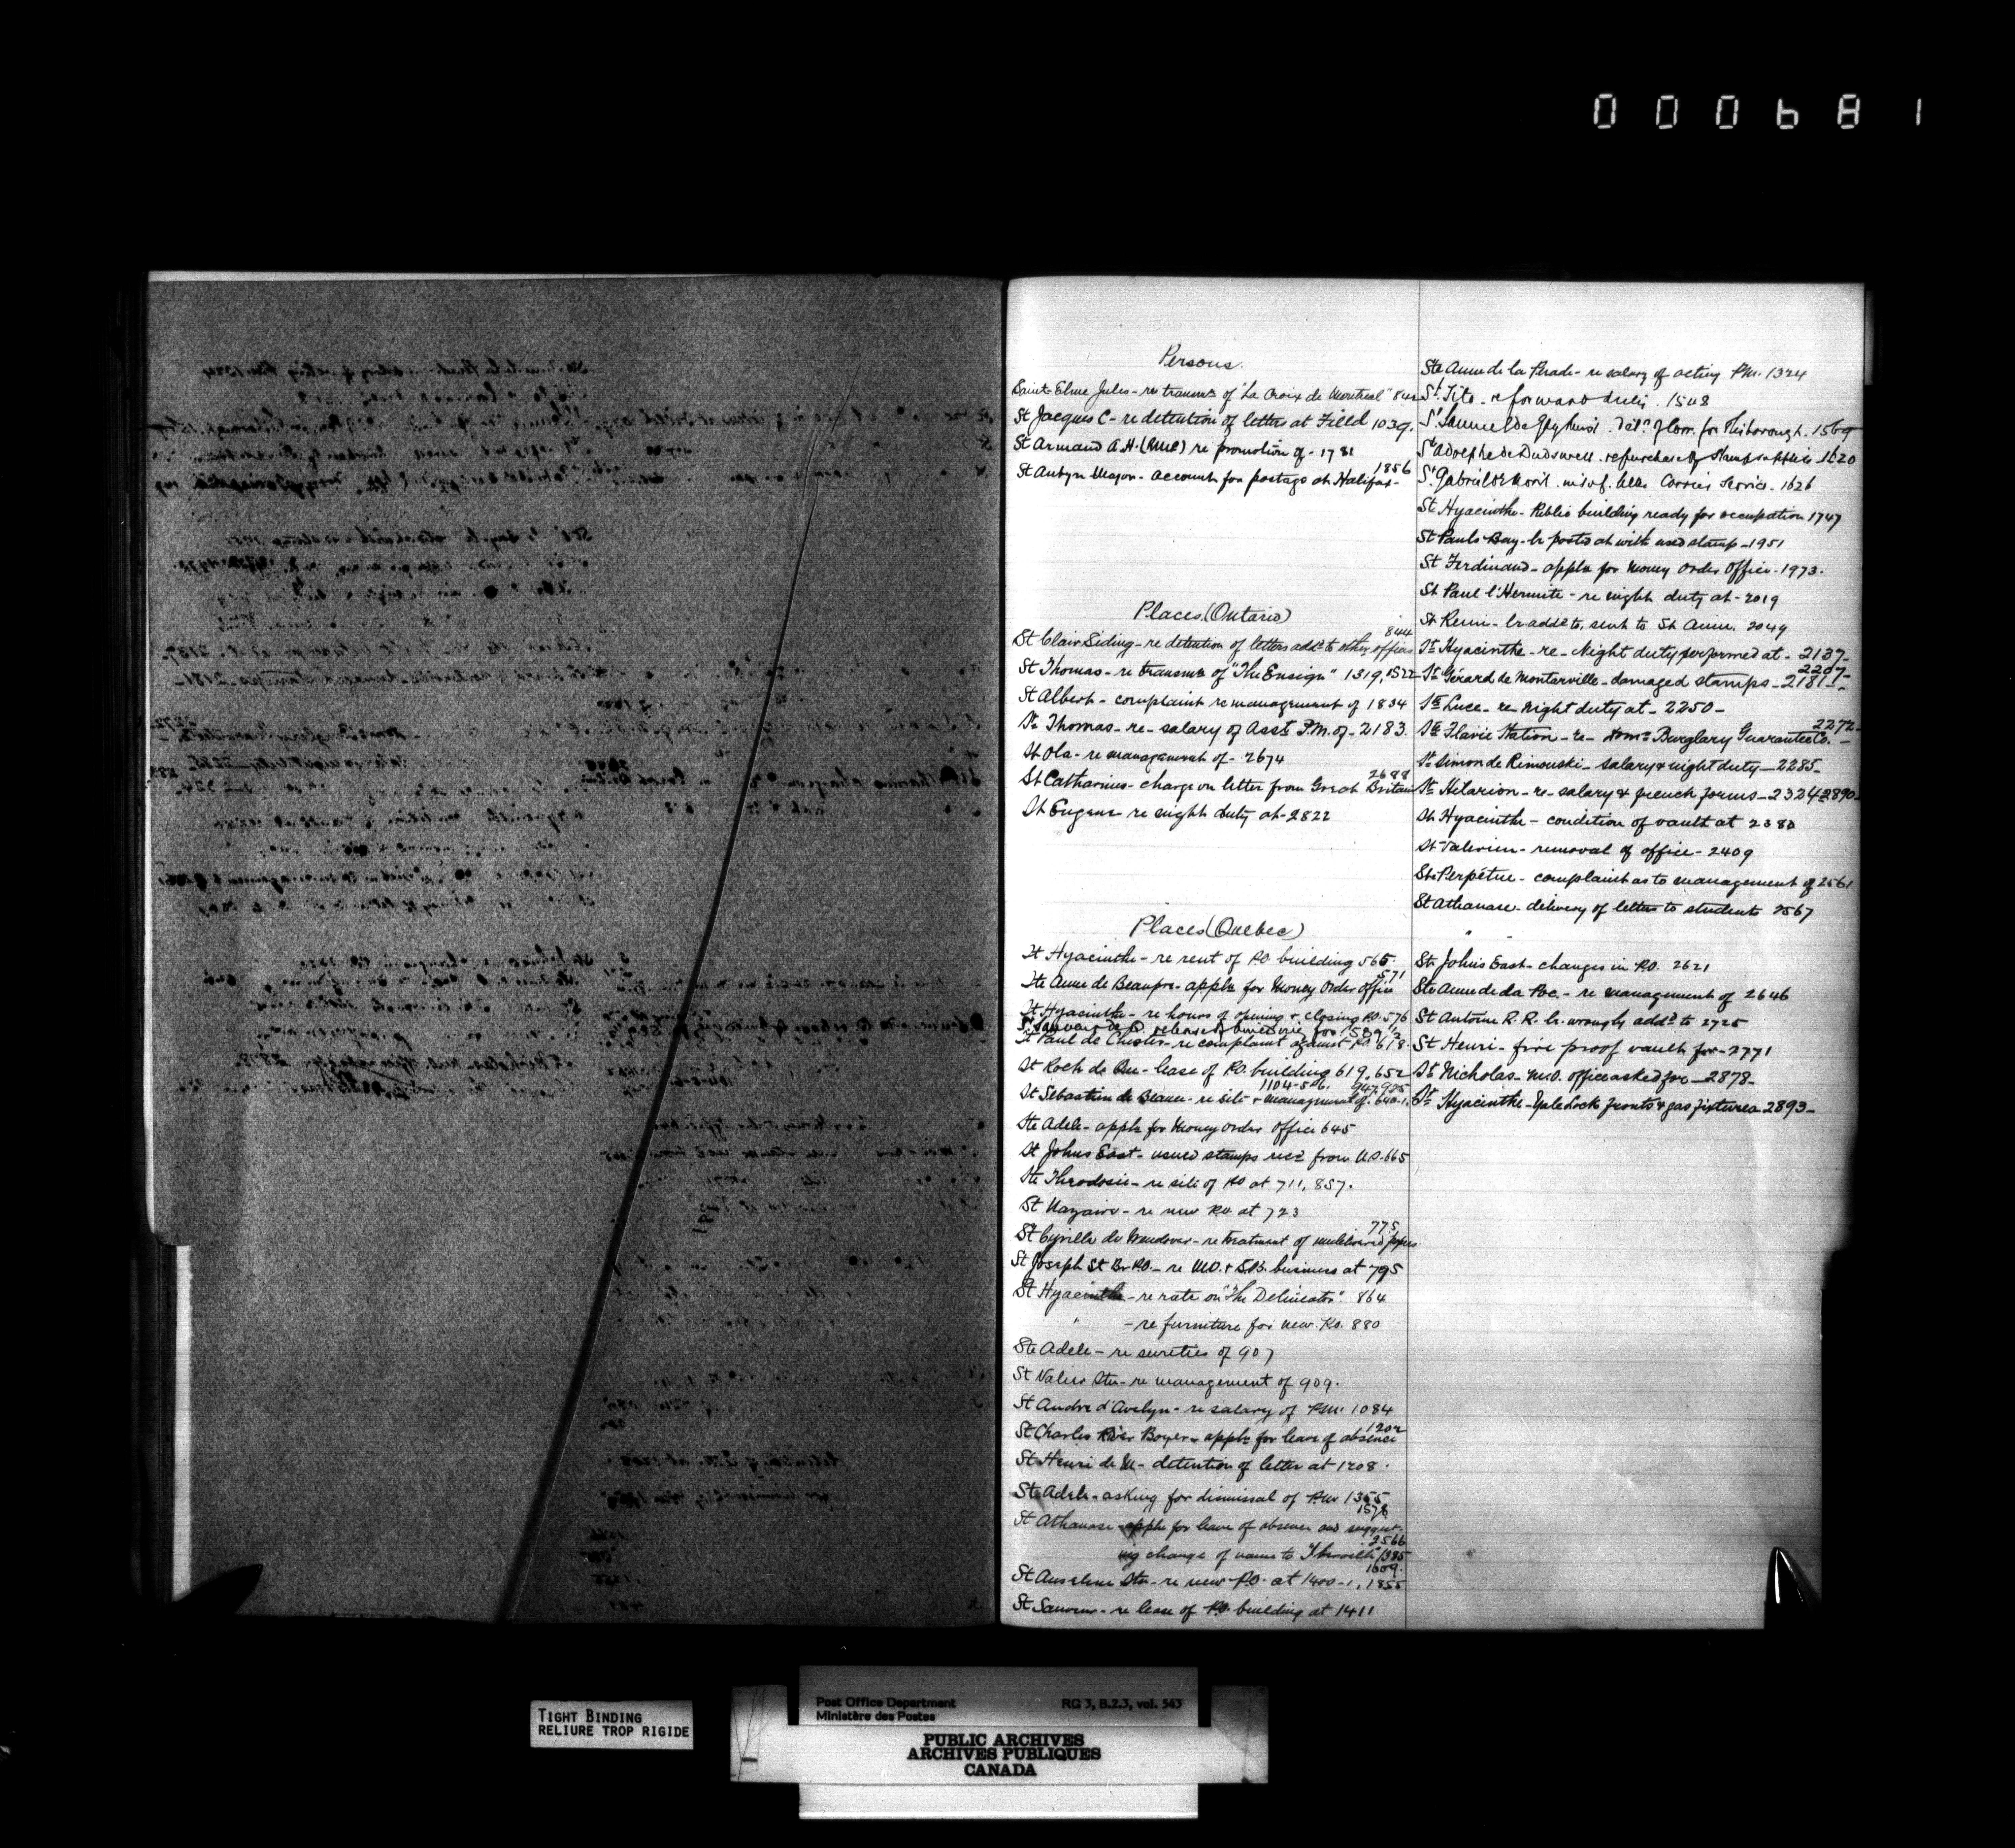 000681
Persons.
Saint-Elme Jules - re transms of "La Croix de Montreal" 842
St Jacques C - re detention of letters at Filled 1039.
St Armand A.H. (RMC) re promotion of - 1781
1856
St Aubyn Major - account for postage at Halifax -
Places (Ontario)
844
St Clair Siding - re detention of letters addd to other offices
St Thomas - re transms of "The Ensign" 1319, 1522
St Albert - complaint re management of 1834
St Thomas - re - salary of Asst P.M. of - 2183.
St Ola - re management of - 2674
2688
St Catharines - charge on letter from Great Britain
St Eugene re night duty at - 2822
Places (Quebec)
St Hyacinthe - re rent of P.O. building 565
571
Ste Anne de Beaupre - appln for Money Order Office
St Hyacinthe - re hours of opening & closing P.O. 576
St Sauveur de Q. release of 1589 1/2
St Paul de Chester - re complaint against P.O. 618.
St Roch de Que - lease of P.O. building 619, 652
1104-5-6. 947, 925
St Sebastien de Beauce - re site & management of. 640-1.
Ste Adele - appln for Money Order Office 645
St Johns East - unused stamps recd from U.S. 665
Ste Theodosie - re site of P.O. at 711, 857.
St Nazaire - re new P.O. at 723
775
St Cyrille de Wendover - re treatment of undelivered papers
St Joseph St Br. P.O. - re M.O. & S.B. business at 795
St Hyacinthe - re rate on "The Delineator" 864
" - re furniture for new P.O. 880
Ste Adele - re sureties of 907
St Valier Stn - re management of 909.
St Andre d'Avelyn - re salary of P.M. 1084
1202
St Charles River Boyer - appln for leave of absence
St Henri de M - detention of letter at 1208.
Ste Adele - asking for dismissal of P.M. 1355
1578
St Athanase - appln for leave of absence and suggest-
2566
ing change of name to "Iberville" 1385
1609.
St Anselme Stn - re new P.O. at 1400-1, 1855
St Sauveur - re lease of P.O. building at 1411
Ste Anne de la Perade - re salary of acting P.M. 1324
St Tite - re forward duty. 1508
St Samuel de Gayhurst. Detn of corr. for Risborough. 1569
St Adolphe de Dudswell. re purchase of stamp supplies 1620
St Gabriel de Mont. Carrier Service - 1626
St Hyacinthe - Public building ready for occupation 1747
St Pauls Bay - lr posted at with used stamp - 1951
St Ferdinand - appln for Money Order Office - 1973.
St Paul l'Hermite - re night duty at - 2019
St Remi - lr addd to, sent to St Anne. 2049
St Hyacinthe - re - Night duty performed at - 2137 -
2207 -
St Gérard de Montarville - damaged stamps - 2181 -
Ste Luce - re night duty at - 2250 -
2272 -
Ste Flavie Station - re - Domn Burglary Guarantee Co. -
St Simon de Rimouski - salary & night duty - 2285 -
St Hilarion - re - salary & french forms - 2324 - 2890 -
St Hyacinthe - condition of vault at 2380
St Valerien - removal of office - 2409
Ste Perpétue - complaint as to management of 2561
St Athanase - delivery of letters to students 2567
St Johns East - changes in P.O. 2621
Ste Anne de la Poc. - re management of 2646
St Antoine R.R. lr. wrongly addd to 2725
St Henri - fire proof vault for - 2771
St Nicholas - M.O. office asked for - 2878 -
St Hyacinthe - Yale Lock fronts & gas fixtures - 2893 -
TIGHT BINDING
RELIURE TROP RIGIDE
Post Office Department RG 3, B.2.3, vol. 543
Ministère des Postes
PUBLIC ARCHIVES
ARCHIVES PUBLIQUES
CANADA